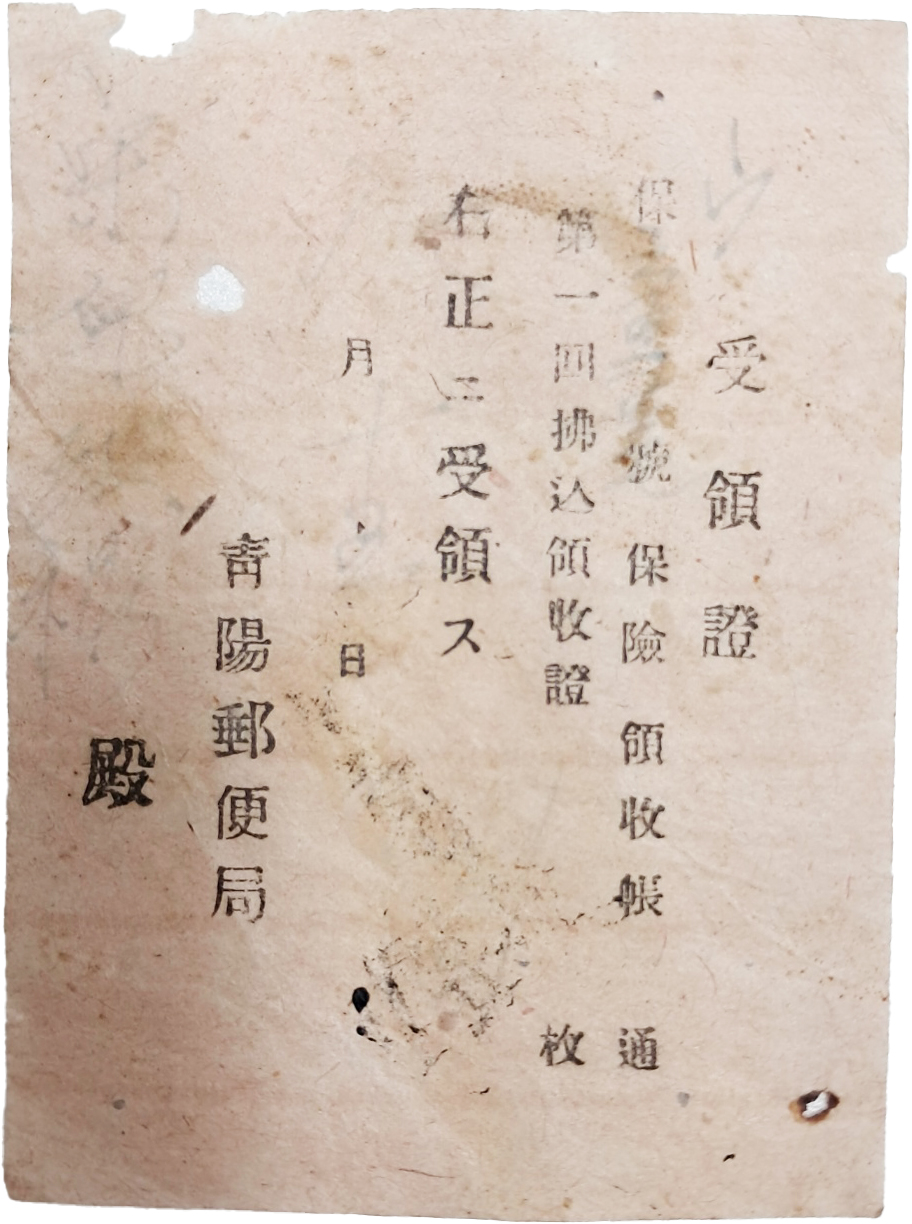 受領證
保 號保險領收帳 通
第一回拂込領收證 枚
右正ニ受領ス
月 日
青陽郵便局
殿